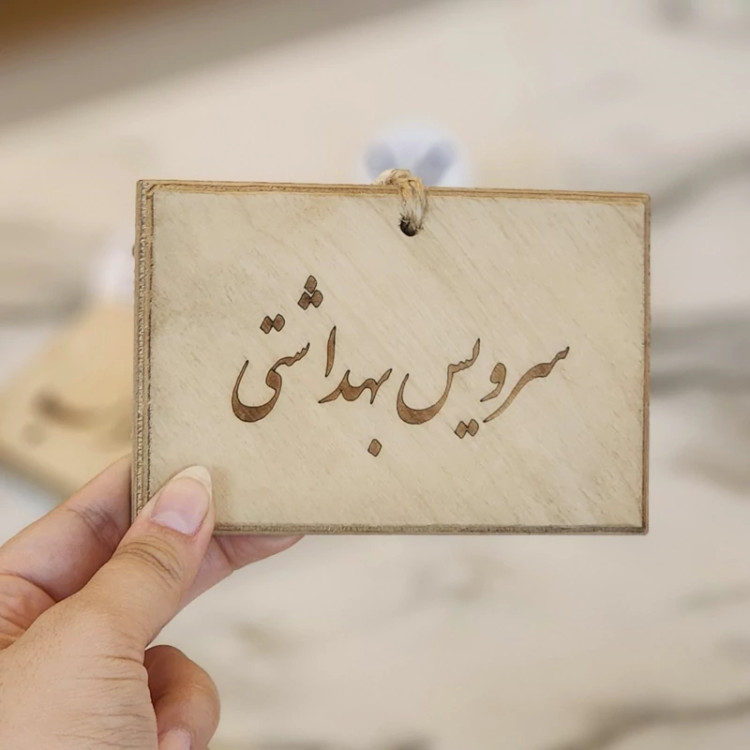 سرویس بهداشتی